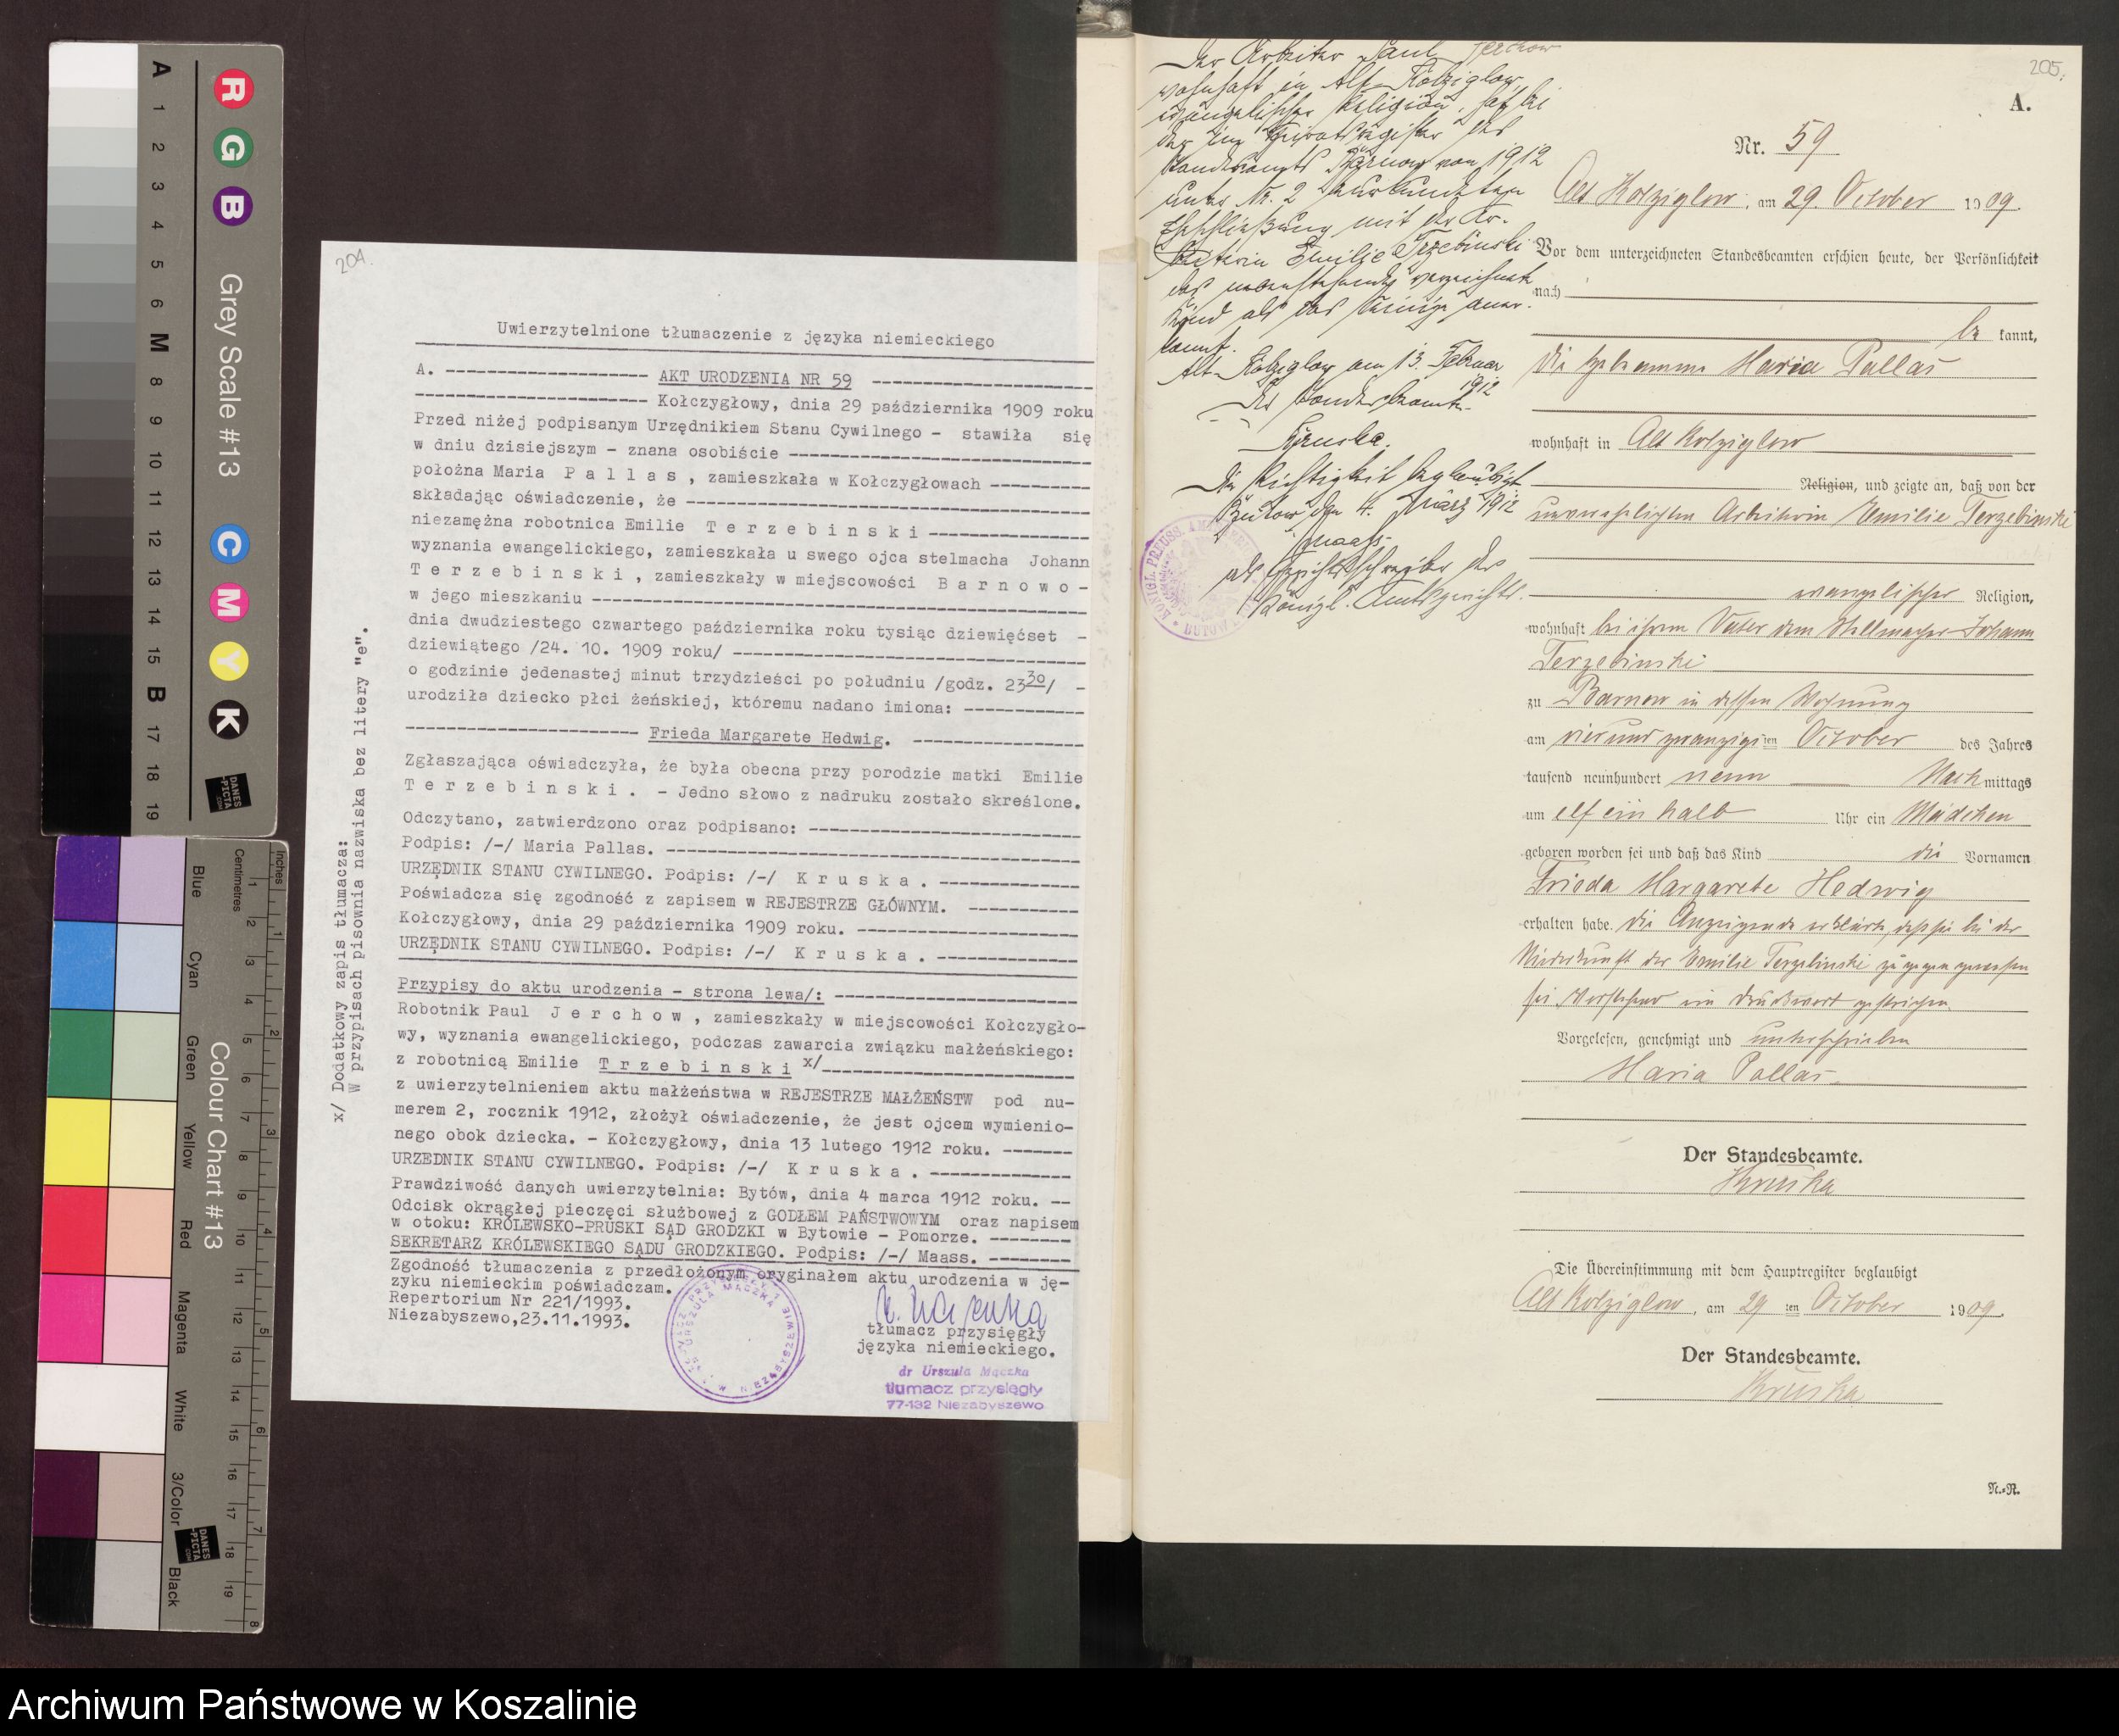 A 1 2 3 4 5 6 M 8 9 10 11 12 13 14 15 B 17 18 19
R G B
Grey Scale #13
C M Y K
DANES
-PICTA
.COM
Blue Cyan Green Yellow Red Magenta White 3/Color Black
Centimetres 1 2 4 5 6 7 8 9 10 11 12 13 14 15 16 17 18 19
Inches 1 2 3 4 5 6 7 8
Colour Chart #13
DANES
-PICTA
.COM
204.
Uwierzytelnione tłumaczenie z języka niemieckiego
A. -------------------- AKT URODZENIA NR 59 ----------------------
----------------------- Kołczygłowy, dnia 29 października 1909 roku
Przed niżej podpisanym Urzędnikiem Stanu Cywilnego - stawiła się
w dniu dzisiejszym - znana osobiście ------------------------------
położna Maria P a l l a s , zamieszkała w Kołczygłowach ----------
składając oświadczenie, że ----------------------------------------
niezamężna robotnica Emilie T e r z e b i n s k i ----------------
wyznania ewangelickiego, zamieszkała u swego ojca stelmacha Johann
T e r z e b i n s k i , zamieszkały w miejscowości B a r n o w o -
w jego mieszkaniu -------------------------------------------------
dnia dwudziestego czwartego października roku tysiąc dziewięćset -
dziewiątego /24. 10. 1909 roku/ -----------------------------------
o godzinie jedenastej minut trzydzieści po południu /godz. 23 30/ -
urodziła dziecko płci żeńskiej, któremu nadano imiona: ------------
----------------------- Frieda Margarete Hedwig. -----------------
Zgłaszająca oświadczyła, że była obecna przy porodzie matki Emilie
T e r z e b i n s k i . - Jedno słowo z nadruku zostało skreślone.
Odczytano, zatwierdzono oraz podpisano: ---------------------------
Podpis: /-/ Maria Pallas. -----------------------------------------
URZĘDNIK STANU CYWILNEGO. Podpis: /-/ K r u s k a . --------------
Poświadcza się zgodność z zapisem w REJESTRZE GŁÓWNYM. -----------
Kołczygłowy, dnia 29 października 1909 roku. ----------------------
URZĘDNIK STANU CYWILNEGO. Podpis: /-/ K r u s k a . --------------
Przypisy do aktu urodzenia - strona lewa/: ------------------------
Robotnik Paul J e r c h o w , zamieszkały w miejscowości Kołczygło-
wy, wyznania ewangelickiego, podczas zawarcia związku małżeńskiego:
z robotnicą Emilie T r z e b i n s k i x/_________________________
z uwierzytelnieniem aktu małżeństwa w REJESTRZE MAŁŻEŃSTW pod nu-
merem 2, rocznik 1912, złożył oświadczenie, że jest ojcem wymienio-
nego obok dziecka. - Kołczygłowy, dnia 13 lutego 1912 roku. -------
URZEDNIK STANU CYWILNEGO. Podpis: /-/ K r u s k a . --------------
Prawdziwość danych uwierzytelnia: Bytów, dnia 4 marca 1912 roku. --
Odcisk okrągłej pieczęci służbowej z GODŁEM PAŃSTWOWYM oraz napisem
w otoku: KRÓLEWSKO-PRUSKI SĄD GRODZKI w Bytowie - Pomorze. --------
SEKRETARZ KRÓLEWSKIEGO SĄDU GRODZKIEGO. Podpis: /-/ Maass. --------
Zgodność tłumaczenia z przedłożonym oryginałem aktu urodzenia w ję-
zyku niemieckim poświadczam.
Repertorium Nr 221/1993.
Niezabyszewo,23.11.1993.
tłumacz przysięgły
języka niemieckiego.
dr Urszula Mączka
tłumacz przysięgły
77-132 Niezabyszewo
x/ Dodatkowy zapis tłumacza:
W przypisach pisownia nazwiska bez litery "e".
Der Arbeiter Paul Jerchow
wohnhaft in Alt-Kolziglow,
evangelischer Religion, hat bei
der im Heiratsregister des
Standesamts Barnow von 1912
unter Nr. 2 beurkundeten
Eheschließung mit der Ar-
beiterin Emilie Trzebinski
das nebenstehende verzeichnete
Kind als das seinige aner-
kannt.
Alt-Kolziglow am 13. Februar
1912
Der Standesbeamte
Kruska.
Die Richtigkeit beglaubigt
Bütow den 4. März 1912
Maass
als Gerichtsschreiber des
Königl. Amtsgerichts.
205.
A.
Nr. 59
Alt Kolziglow, am 29. October 1909.
Vor dem unterzeichneten Standesbeamten erschien heute, der Persönlichkeit
nach
be kannt,
die Hebamme Maria Pallas
wohnhaft in Alt Kolziglow
Religion, und zeigte an, daß von der
unverehelichten Arbeiterin Emilie Terzebinski
evangelischer Religion,
wohnhaft bei ihrem Vater dem Stellmacher Johann
Terzebinski
zu Barnow in dessen Wohnung
am vierundzwanzigsten October des Jahres
tausend neunhundert neun Nachmittags
um elf ein halb Uhr ein Mädchen
geboren worden sei und daß das Kind die Vornamen
Frieda Margarete Hedwig
erhalten habe. Die Anzeigende erklärte, daß sie bei der
Niederkunft der Emilie Terzebinski zugegen gewesen
sei. Vorstehend ein Druckwort gestrichen.
Vorgelesen, genehmigt und unterschrieben
Maria Pallas.
Der Standesbeamte.
Kruska
Die Übereinstimmung mit dem Hauptregister beglaubigt
Alt Kolziglow, am 29 ten October 1909.
Der Standesbeamte.
Kruska
N.=R.
Archiwum Państwowe w Koszalinie